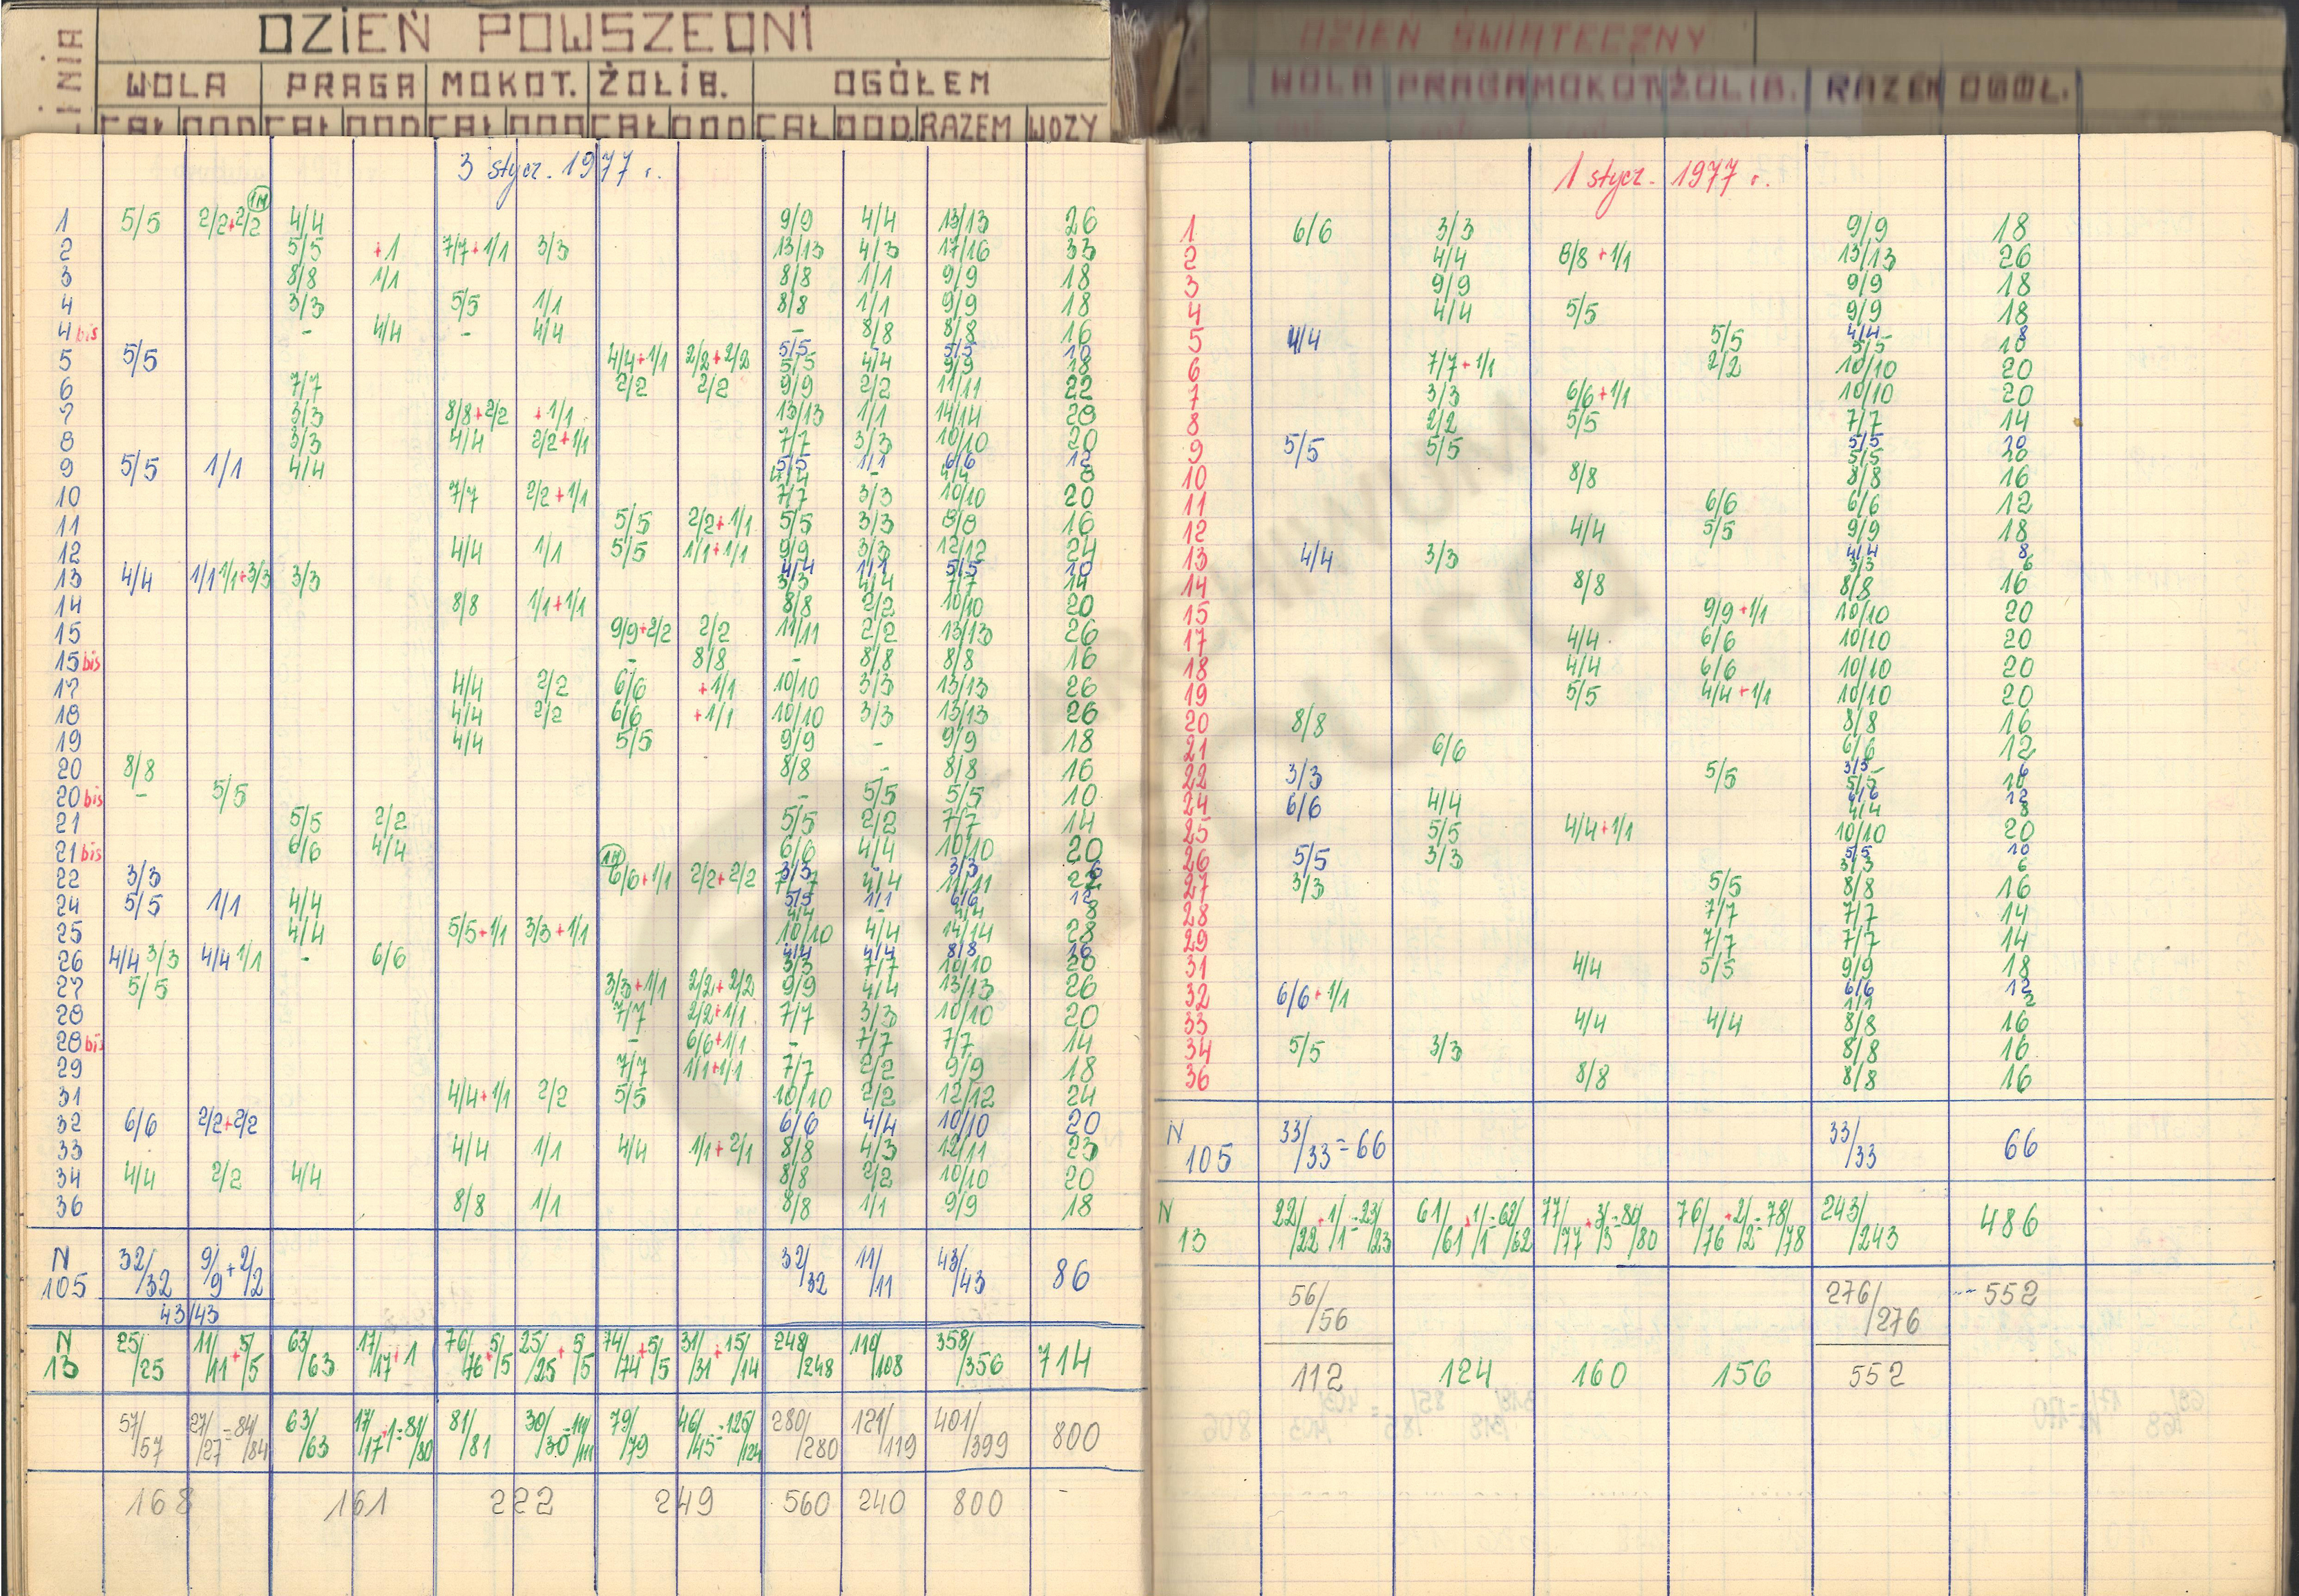 LINIA DZIEŃ POWSZEDNI
WOLA PRAGA MOKOT. ŻOLIB. OGÓŁEM
CAŁ DOD CAŁ DOD CAŁ DOD CAŁ DOD CAŁ DOD RAZEM WOZY
3 stycz. 1977 r.
1M
1 5/5 2/2+2/2 4/4 9/9 4/4 13/13 26
2 5/5 +1 7/7+1/1 3/3 13/13 4/3 17/16 33
3 8/8 1/1 8/8 1/1 9/9 18
4 3/3 5/5 1/1 8/8 1/1 9/9 18
4 bis - 4/4 - 4/4 - 8/8 8/8 16
5/5 5/5 10
5 5/5 4/4+1/1 2/2+2/2 5/5 4/4 9/9 18
6 7/7 2/2 2/2 9/9 2/2 11/11 22
7 3/3 8/8+2/2 +1/1 13/13 1/1 14/14 28
8 3/3 4/4 2/2+1/1 7/7 3/3 10/10 20
5/5 1/1 6/6 12
9 5/5 1/1 4/4 4/4 - 4/4 8
10 7/7 2/2+1/1 7/7 3/3 10/10 20
11 5/5 2/2+1/1 5/5 3/3 8/8 16
12 4/4 1/1 5/5 1/1+1/1 9/9 3/3 12/12 24
4/4 1/1 5/5 10
13 4/4 1/1 1/1+3/3 3/3 3/3 4/4 7/7 14
14 8/8 1/1+1/1 8/8 2/2 10/10 20
15 9/9+2/2 2/2 11/11 2/2 13/13 26
15 bis - 8/8 - 8/8 8/8 16
17 4/4 2/2 6/6 +1/1 10/10 3/3 13/13 26
18 4/4 2/2 6/6 +1/1 10/10 3/3 13/13 26
19 4/4 5/5 9/9 - 9/9 18
20 8/8 8/8 - 8/8 16
20 bis - 5/5 - 5/5 5/5 10
21 5/5 2/2 5/5 2/2 7/7 14
21 bis 6/6 4/4 6/6 4/4 10/10 20
1M 3/3 3/3 6
22 3/3 6/6+1/1 2/2+2/2 7/7 4/4 11/11 22
5/5 1/1 6/6 12
24 5/5 1/1 4/4 4/4 - 4/4 8
25 4/4 5/5+1/1 3/3+1/1 10/10 4/4 14/14 28
4/4 4/4 8/8 16
26 4/4 3/3 4/4 1/1 - 6/6 3/3 7/7 10/10 20
27 5/5 3/3+1/1 2/2+2/2 9/9 4/4 13/13 26
28 7/7 2/2+1/1 7/7 3/3 10/10 20
28 bis - 6/6+1/1 - 7/7 7/7 14
29 7/7 1/1+1/1 7/7 2/2 9/9 18
31 4/4+1/1 2/2 5/5 10/10 2/2 12/12 24
32 6/6 2/2+2/2 6/6 4/4 10/10 20
33 4/4 1/1 4/4 1/1+2/1 8/8 4/3 12/11 23
34 4/4 2/2 4/4 8/8 2/2 10/10 20
36 8/8 1/1 8/8 1/1 9/9 18
N 105 32/32 9/9+2/2 32/32 11/11 43/43 86
43/43
N 13 25/25 11/11+5/5 63/63 17/17+1 76/76+5/5 25/25+5/5 74/74+5/5 31/31+15/14 248/248 110/108 358/356 714
57/57 27/27=84/84 63/63 17/17+1=81/80 81/81 30/30=111/111 79/79 46/45=125/124 280/280 121/119 401/399 800
168 161 222 249 560 240 800 -
DZIEŃ ŚWIĄTECZNY
WOLA PRAGA MOKOT. ŻOLIB. RAZEM OGÓŁ.
1 stycz. 1977 r.
1 6/6 3/3 9/9 18
2 4/4 8/8+1/1 13/13 26
3 9/9 9/9 18
4 4/4 5/5 9/9 18
4/4 8
5 4/4 5/5 5/5 10
6 7/7+1/1 2/2 10/10 20
7 3/3 6/6+1/1 10/10 20
8 2/2 5/5 7/7 14
5/5
9 5/5 5/5 5/5 20
10 8/8 8/8 16
11 6/6 6/6 12
12 4/4 5/5 9/9 18
4/4 8
13 4/4 3/3 3/3 6
14 8/8 8/8 16
15 9/9+1/1 10/10 20
17 4/4 6/6 10/10 20
18 4/4 6/6 10/10 20
19 5/5 4/4+1/1 10/10 20
20 8/8 8/8 16
21 6/6 6/6 12
3/3 6
22 3/3 5/5 5/5 10
6/6 12
24 6/6 4/4 4/4 8
25 5/5 4/4+1/1 10/10 20
5/5 10
26 5/5 3/3 3/3 6
27 3/3 5/5 8/8 16
28 7/7 7/7 14
29 7/7 7/7 14
31 4/4 5/5 9/9 18
6/6 12
32 6/6+1/1 1/1 2
33 4/4 4/4 8/8 16
34 5/5 3/3 8/8 16
36 8/8 8/8 16
N 105 33/33=66 33/33 66
N 13 22/22+1/1=23/23 61/61+1/1=62/62 77/77+3/3=80/80 76/76+2/2=78/78 243/243 486
56/56 276/276 -- 552
112 124 160 156 552